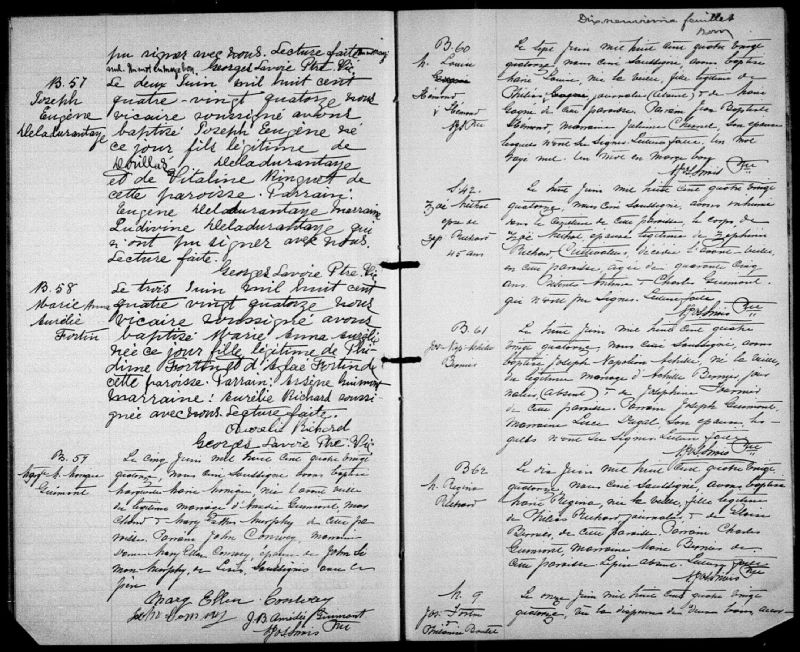 pu signer avec nous. Lecture faite
Georges Lavoie Ptre. Vic
B. 57
Joseph
Eugène
Deladurantaye
Le deux Juin mil huit cent
quatre-vingt quatorze nous
vicaire soussigné avons
baptisé Joseph Eugène né
ce jour fils légitime de
Deladurantaye
et de Vitaline Ringuet de
cette paroisse. Parrain:
Eugène Deladurantaye marraine
Ludivine Deladurantaye qui
n'ont pu signer avec nous.
Lecture faite.
Georges Lavoie Ptre. Vic
B. 58
Marie Anna
Aurélie
Fortin
Le trois Juin mil huit cent
quatre vingt quatorze nous
vicaire soussigné avons
baptisé Marie Anna Aurélie
née ce jour fille légitime de Phi-
lime Fortin & d'Adae Fortin de
cette paroisse. Parrain: Arsène Guimont
marraine: Aurélie Richard soussi-
gnée avec nous. Lecture faite.
Aurélie Richard
Georges Lavoie Ptre. Vic
B. 59
Guimont
Le cinq Juin mil huit cent quatre vingt
quatorze, nous curé soussigné avons baptisé
Marie Monique, née l'avant veille
du légitime mariage d'Amédée Guimont, mar
chand & Mary Ellen Murphy de cette pa
roisse. Parrain John Conway, marraine
Dame Mary Ellen Conway épouse de John
Murphy, de Lévis, soussignés avec le
père
Mary Ellen Conway
John Conway J. B. Amédée Guimont
Ptre
Dix neuvième feuillet
B. 60
M. Louise
Hémond
Le sept Juin mil huit cent quatre vingt
quatorze, nous curé soussigné, avons baptisé
Marie Louise, née la veille, fille légitime de
journalier (absent) & de Marie
Gagné de cette paroisse. Parrain Jean Baptiste
Hémond, marraine Julienne son épouse
lesquels n'ont su signer. Lecture faite. Un mot
rayé nul. Un mot en marge bon
Ptre
S. 42
Zoé Métivot
épse de
Zép Richard
45 ans
Le huit Juin mil huit cent quatre vingt
quatorze, nous curé soussigné, avons inhumé
dans le cimetière de cette paroisse, le corps de
Zoé épouse légitime de Zéphirin
Richard, cultivateur, décédée l'avant veille,
en cette paroisse, agée de quarante cinq
ans. Présents Antoine & Charles Guimont
qui n'ont pu signer. Lecture faite
Ptre
B. 61
Jos. Nap. Achille
Bernier
Le huit Juin mil huit cent quatre
vingt quatorze, nous curé soussigné, avons
baptisé Joseph Napoléon Achille, né la veille,
du légitime mariage d'Achille Bernier, jour
nalier (absent) & de Joséphine Fournier
de cette paroisse. Parrain Joseph Guimont,
marraine Luce son épouse, les-
quels n'ont su signer. Lecture faite
Ptre
B. 62
M. Regina
Richard
Le dix Juin mil huit cent quatre vingt
quatorze, nous curé soussigné, avons baptisé
Marie Regina, née la veille, fille légitime
de Richard, journalier & de
Bernier, de cette paroisse. Parrain Charles
Guimont, marraine Marie Bernier de
cette paroisse. Le père absent. Lecture faite
Ptre
M. 9
Jos. Fortin
&
Philomène Boulet
Le onze Juin mil huit cent quatre vingt
quatorze, vu la dispense de deux bans accor-